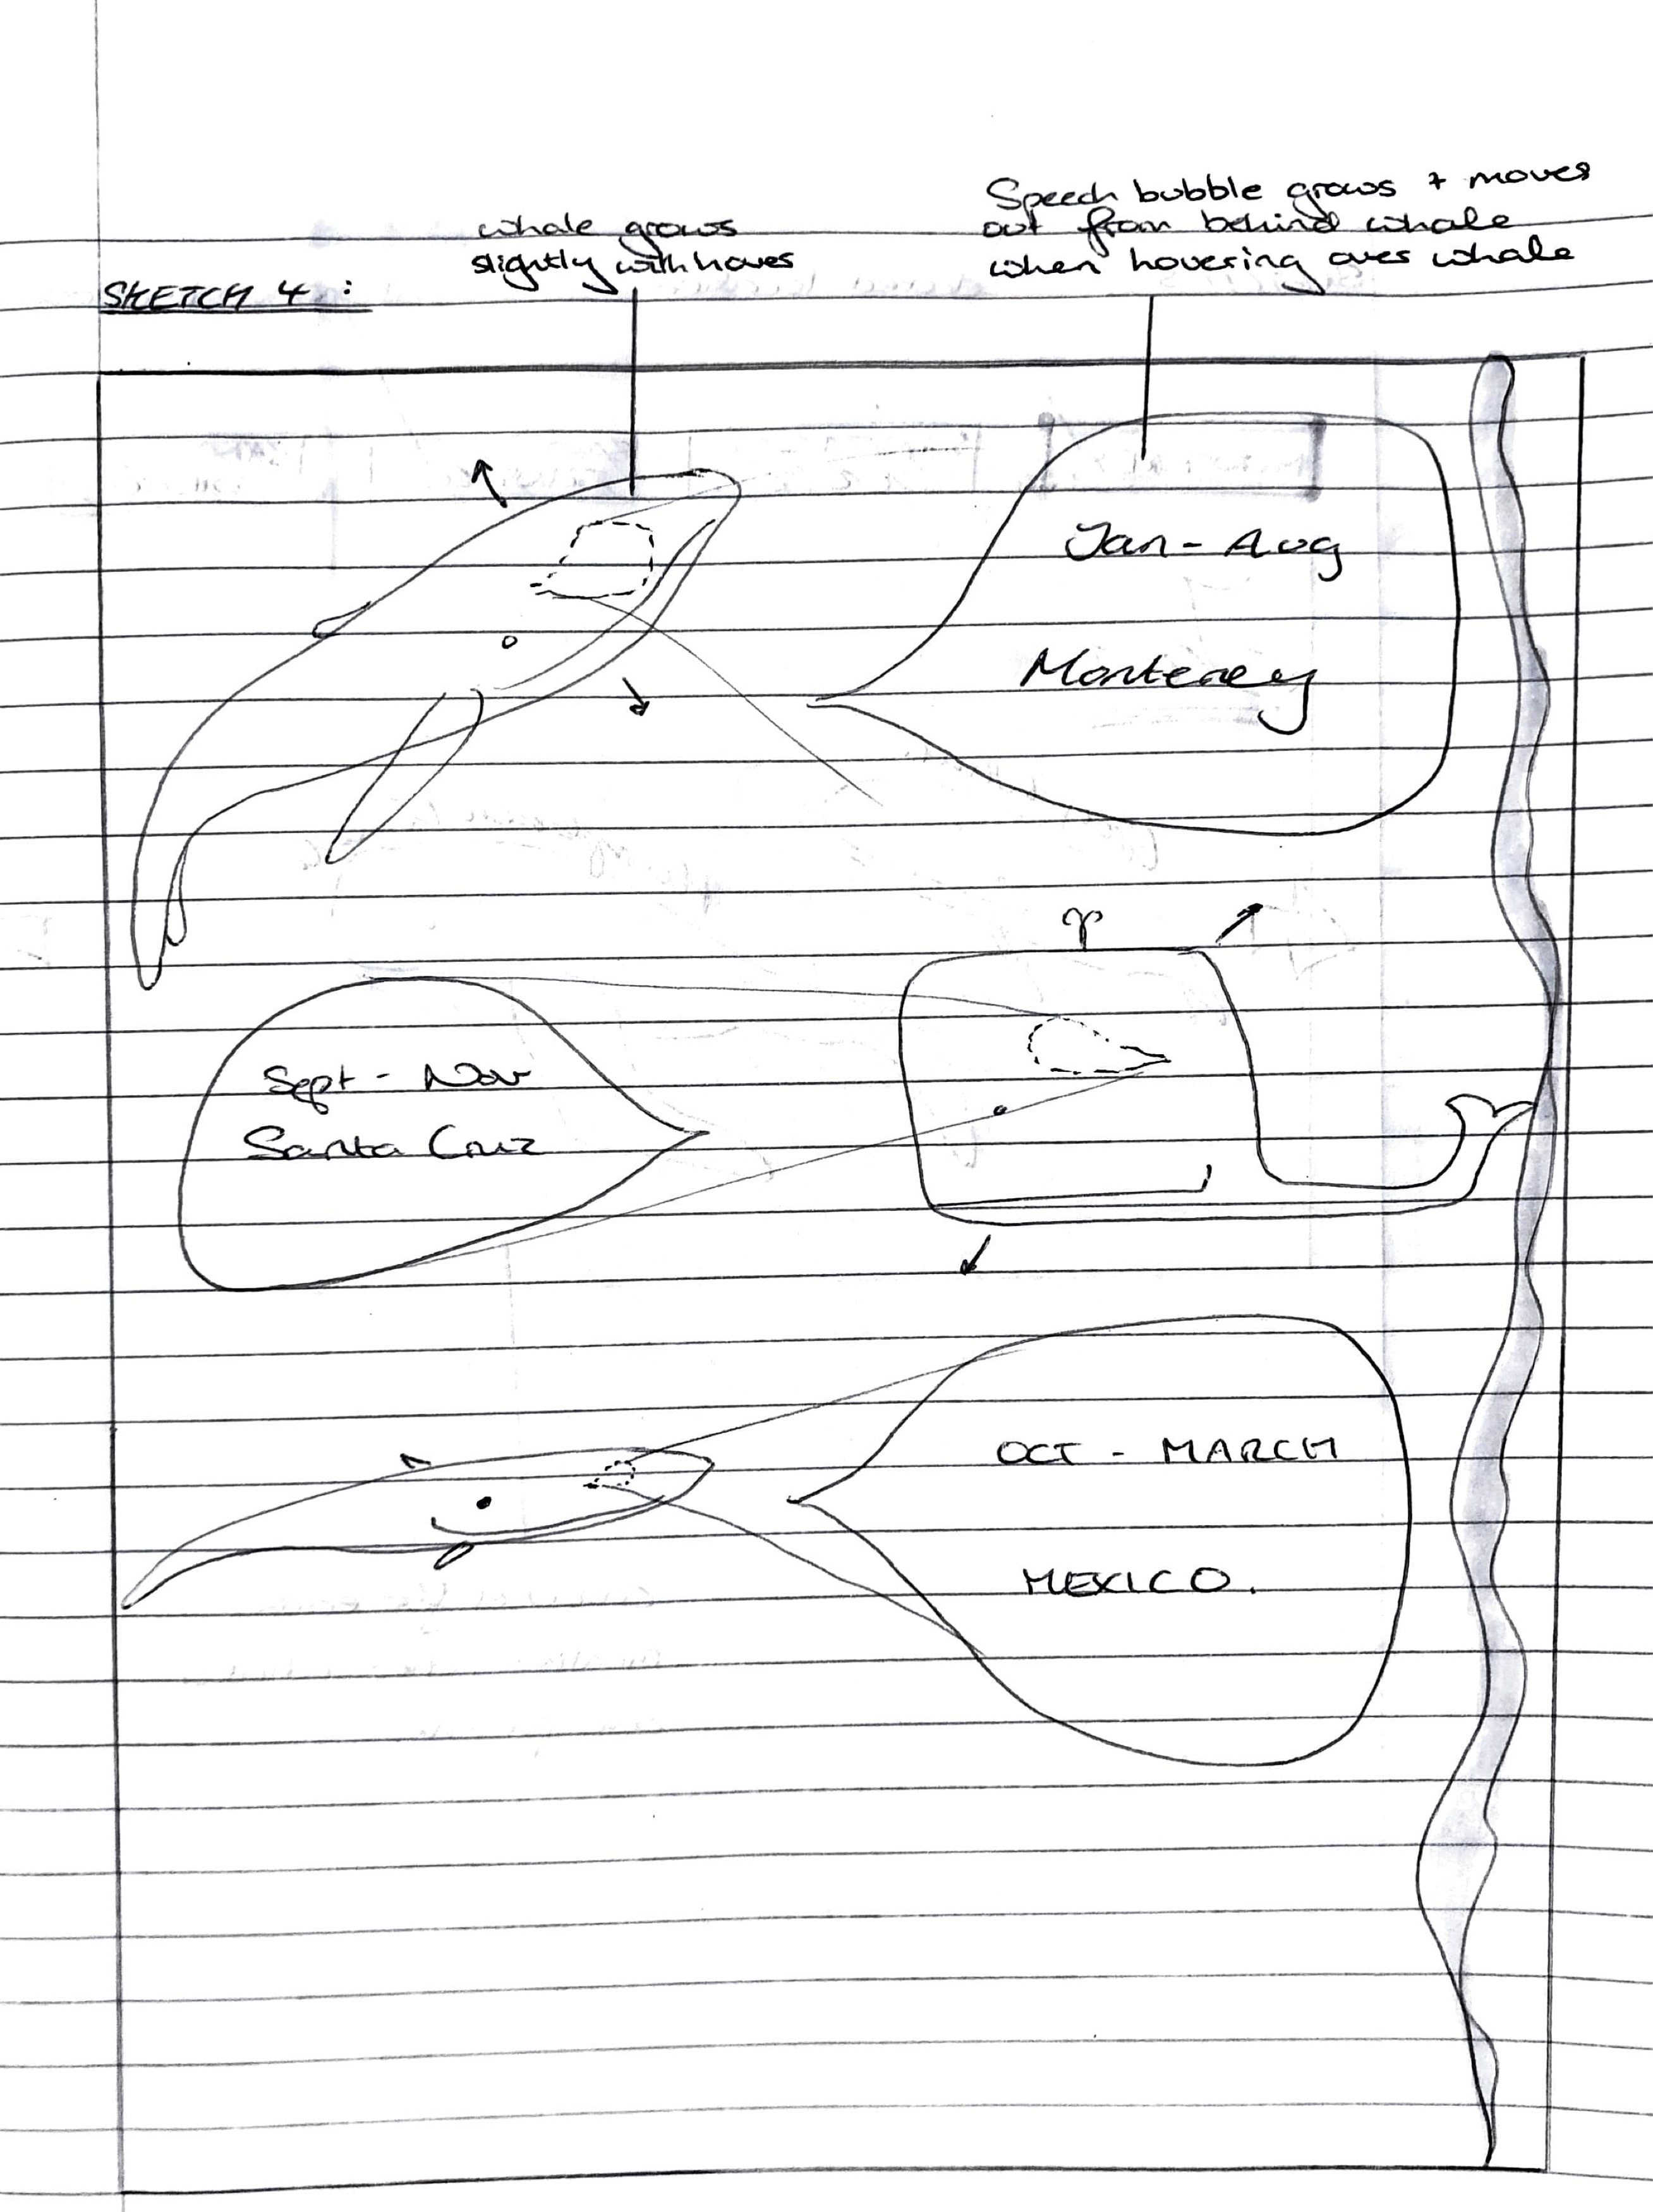 whale grows
slightly with hover
Speech bubble grows + moves
out from behind whale
when hovering over whale
SKETCH 4 :
Jan - Aug
Monterey
Sept - Nov
Santa Cruz
OCT - MARCH
MEXICO.